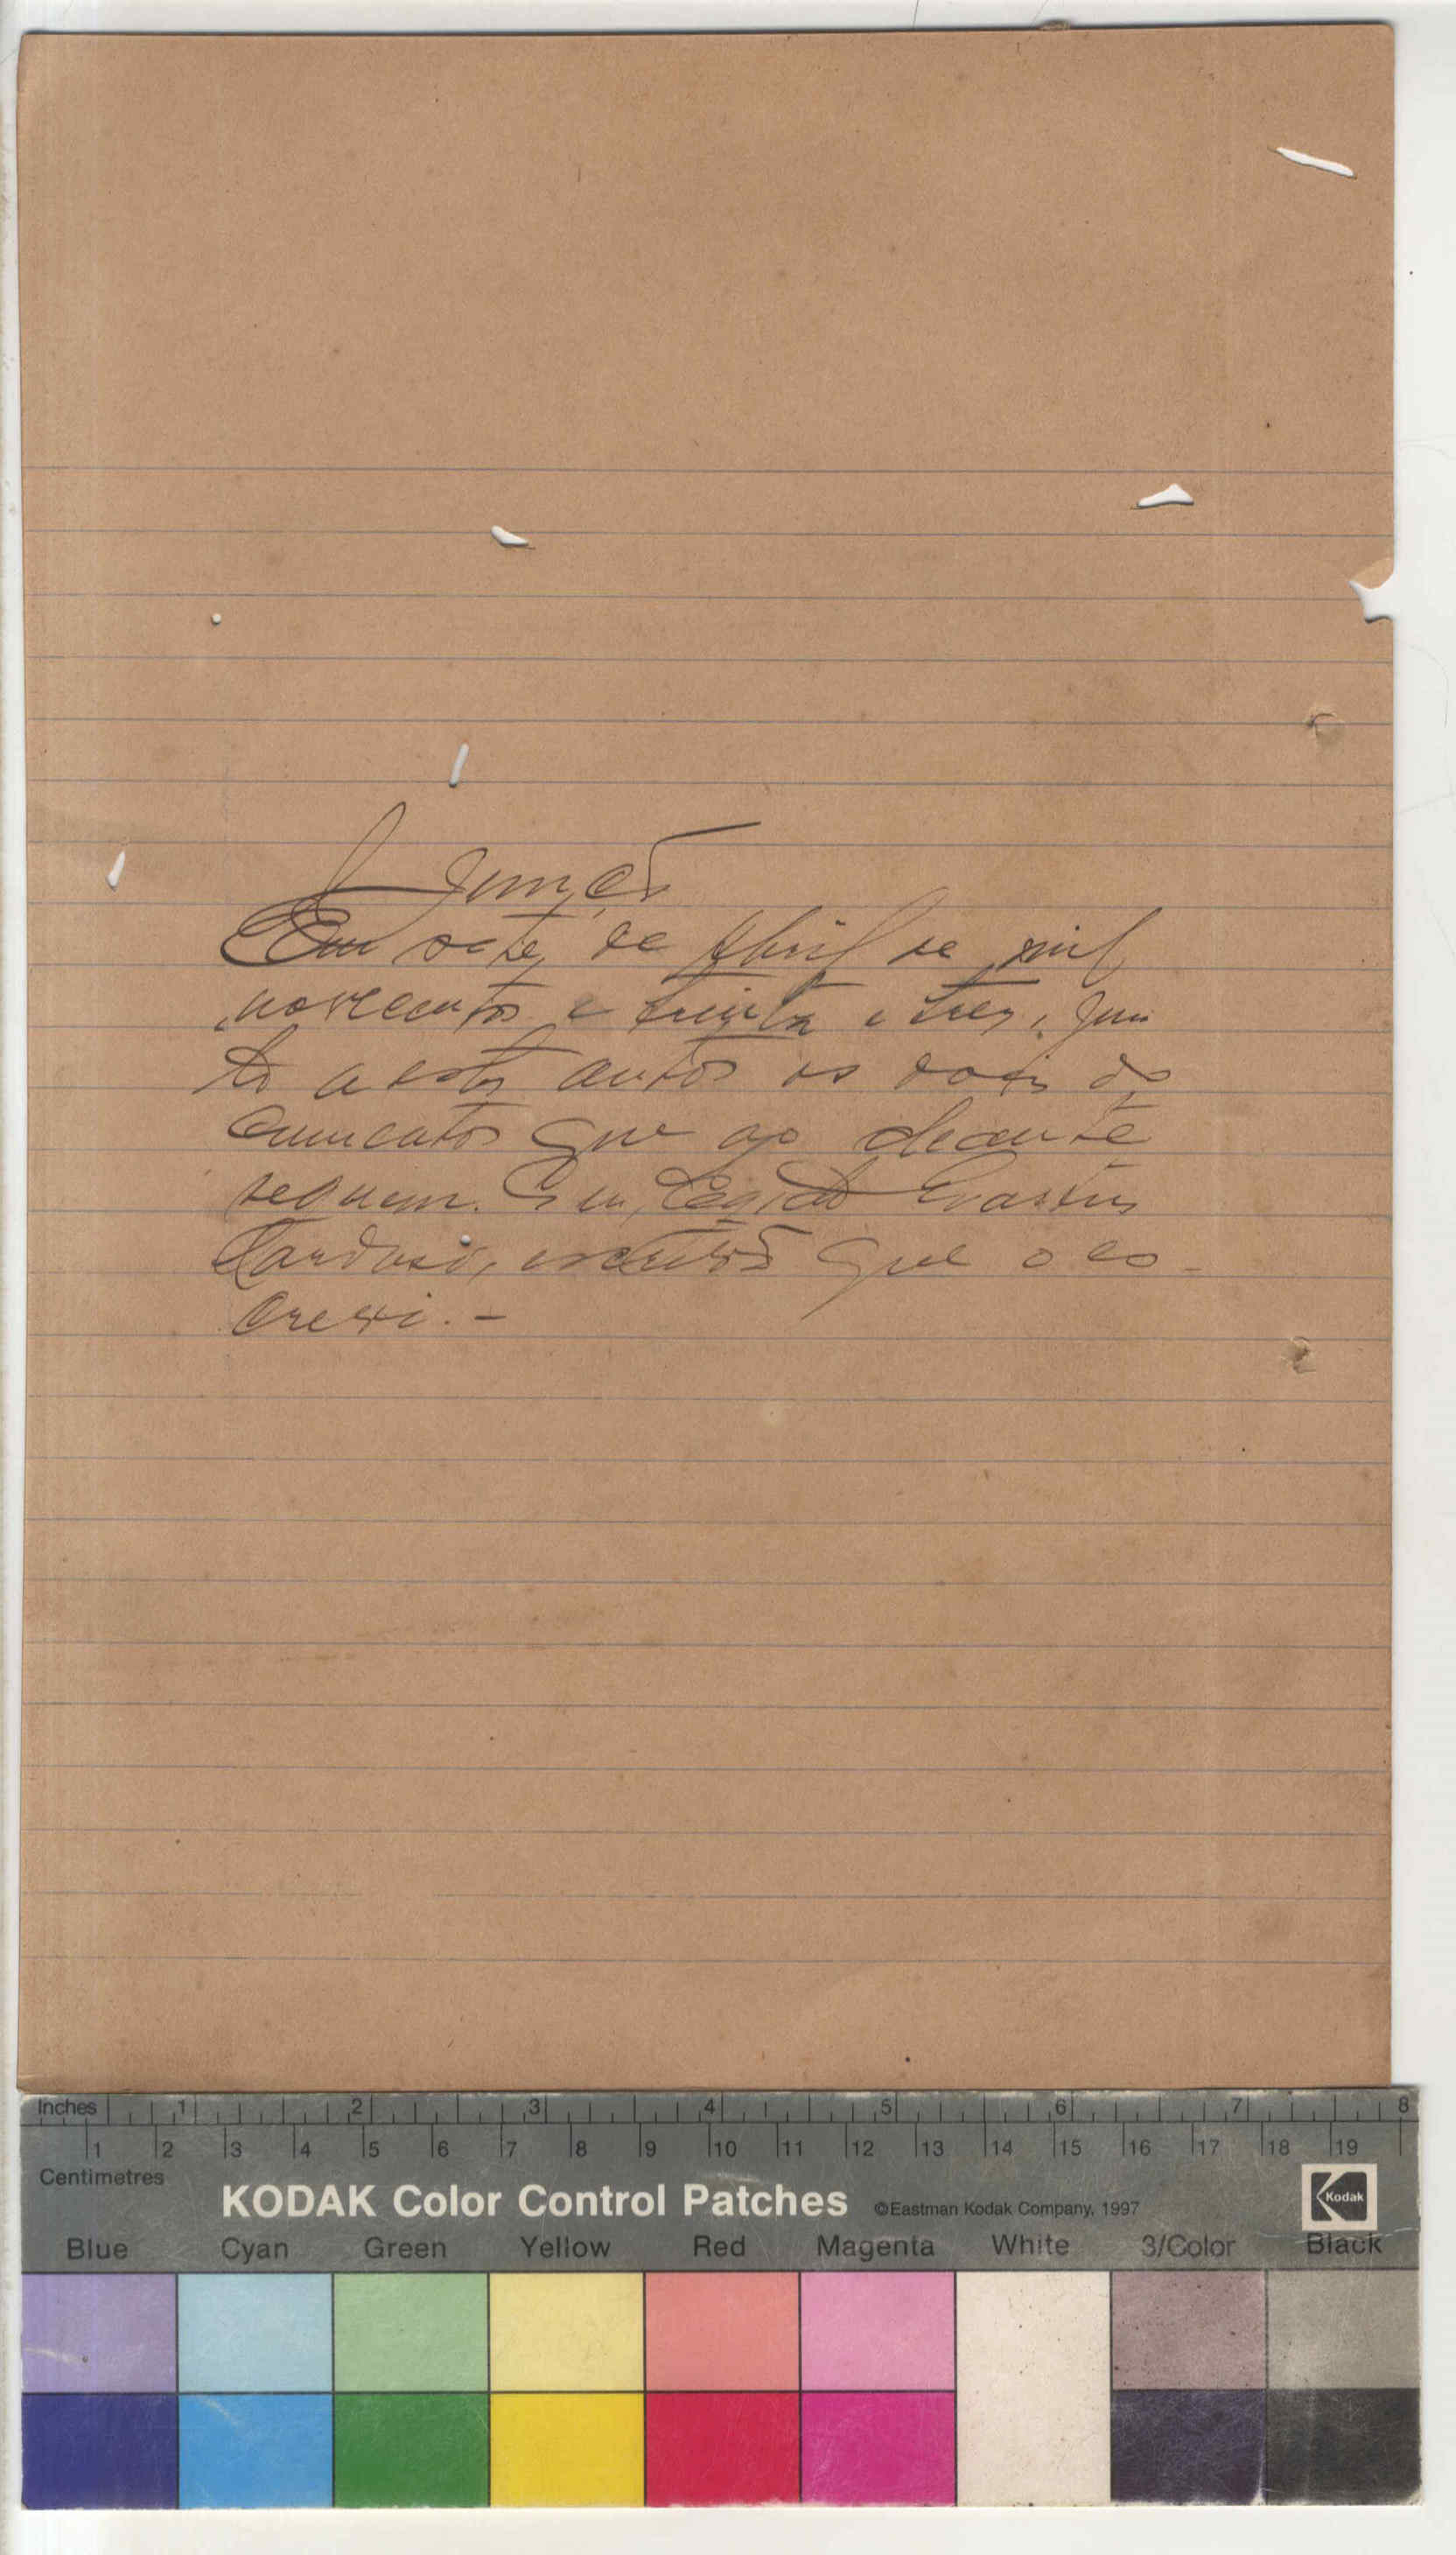 Junção
Em sete de Abril de mil
novecentos e trinta e tres, jun
to a estes autos os dois do
cumentos que ao deante
seguem. Eu,
Cardoso, escrivão que o es-
crevi. -
Inches 1 2 3 4 5 6 7 8
1 2 3 4 5 6 7 8 9 10 11 12 13 14 15 16 17 18 19
Centimetres
KODAK Color Control Patches ©Eastman Kodak Company, 1997 Kodak
Blue Cyan Green Yellow Red Magenta White 3/Color Black